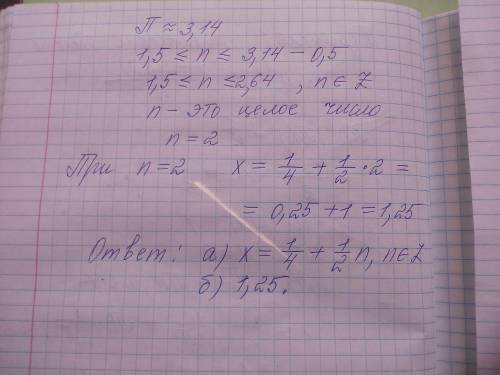 П ≈ 3,14
1,5 ≤ n ≤ 3,14 − 0,5
1,5 ≤ n ≤ 2,64 , n ∈ Z
n - это целое число
n = 2
При n = 2 x = 1/4 + 1/2 · 2 =
= 0,25 + 1 = 1,25
Ответ: а) x = 1/4 + 1/2 n, n ∈ Z
б) 1,25.